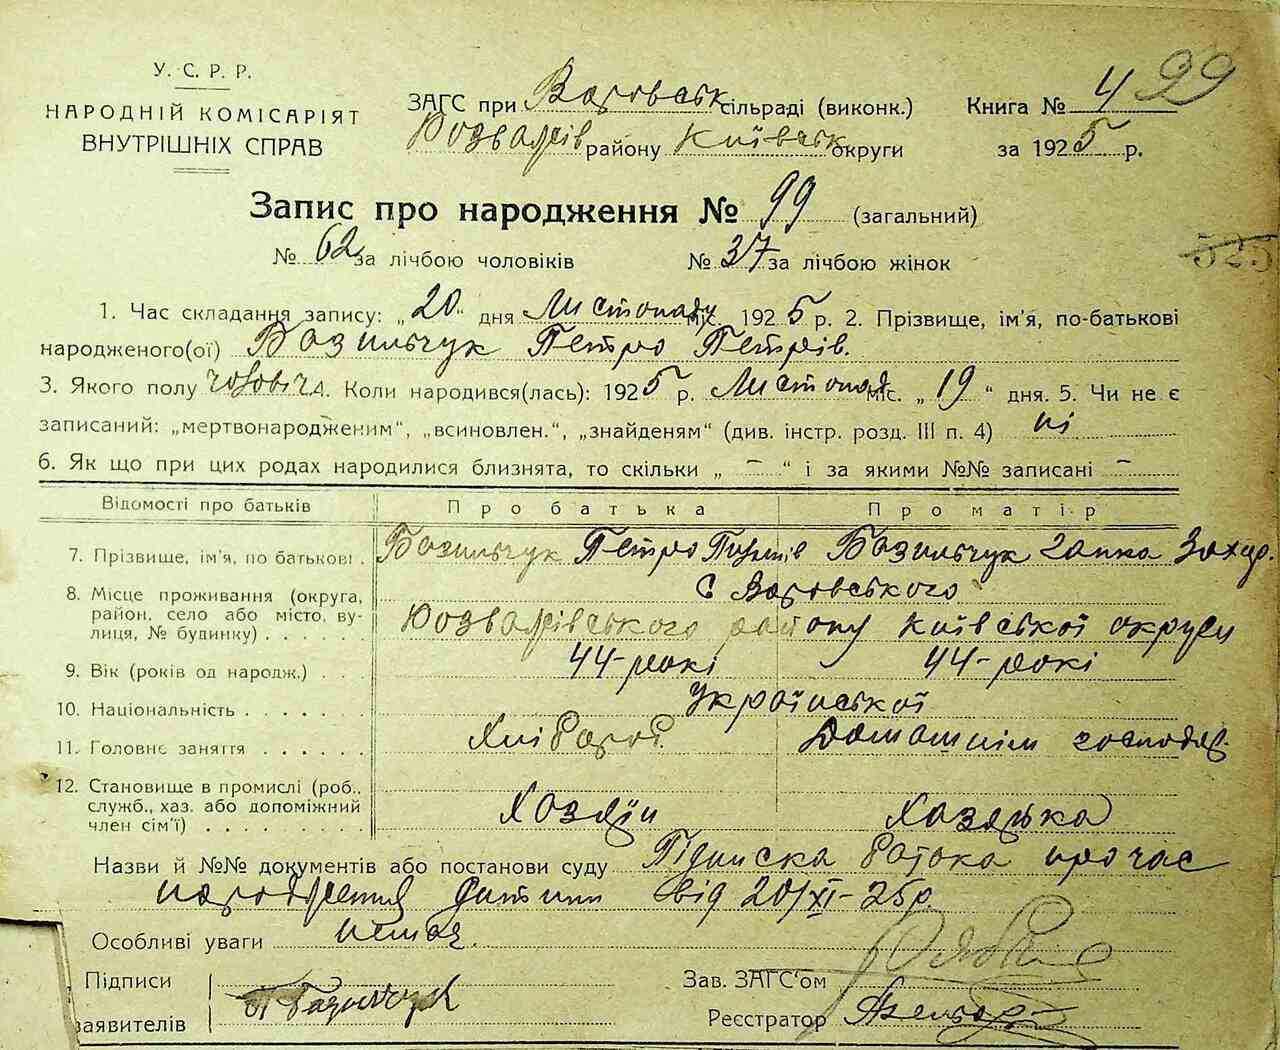 У. С. Р. Р.
НАРОДНІЙ КОМІСАРІЯТ
ВНУТРІШНІХ СПРАВ
ЗАГС при сільраді (виконк.)
Розважів району Київськ округи
Книга № 4 99
за 1925 р.
Запис про народження № 99 (загальний)
№ 62 за лічбою чоловіків № 37 за лічбою жінок
525
1. Час складання запису: „ 20 “ дня Листопаду міс. 1925 р. 2. Прізвище, ім'я, по-батькові
народженого(ої) Базильчук Петро Петрів.
3. Якого полу чоловіча. Коли народився(лась): 1925 р. Листопад міс. „ 19 “ дня. 5. Чи не є
записаний: „мертвонародженим“, „всиновлен.“, „знайденям“ (див. інстр. розд. III п. 4) ні
6. Як що при цих родах народилися близнята, то скільки „ – “ і за якими №№ записані –
Відомості про батьків Про батька Про матір
7. Прізвище, ім'я, по батькові . Базильчук Петро Базильчук Ганка Захар.
8. Місце проживання (округа, район, село або місто, вулиця, № будинку) . . . . с
Розважівського району Київської округи
9. Вік (років од народж.) . . . 44-рокі 44-рокі
10. Національність . . . . . . . Української
11. Головне заняття . . . . . . Хлібороб. Домашнім господар.
12. Становище в промислі (роб., служб., хаз. або допоміжний член сім'ї) . . . . . . . . . Хозяїн Хазяйка
Назви й №№ документів або постанови суду Підписка батька про час
народження дитини від 20/XI-25р.
Особливі уваги немає.
Підписи
заявителів П Базильчук
Зав. ЗАГС'ом
Реєстратор